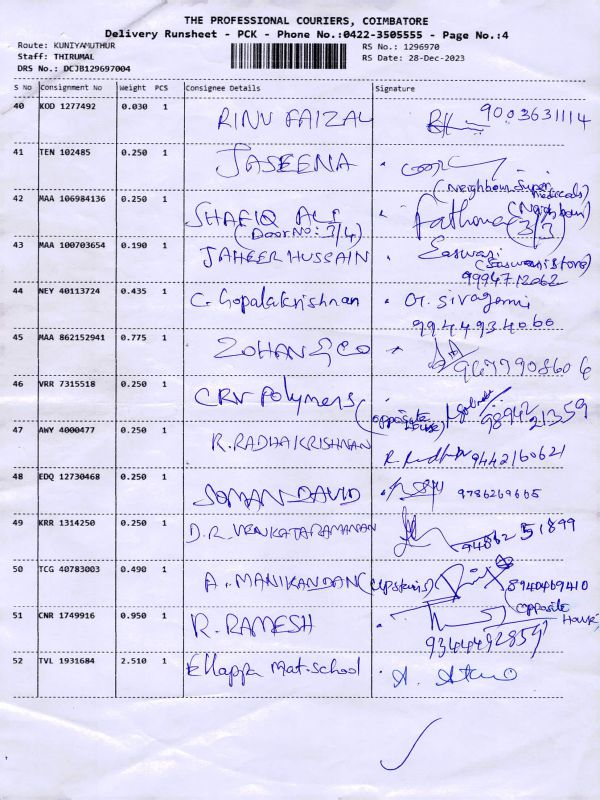 THE PROFESSIONAL COURIERS, COIMBATORE
Delivery Runsheet - PCK - Phone No.:0422-3505555 - Page No.:4
Route: KUNIYAMUTHUR
RS No.: 1296970
Staff: THIRUMAL
RS Date: 28-Dec-2023
DRS No.: DCJB129697004
S No Consignment No Weight PCS Consignee Details Signature
40 KOD 1277492 0.030 1 RINU FAIZAL 9003631114
41 TEN 102485 0.250 1 JASEENA
(Neighbour Super medicals)
42 MAA 106984136 0.250 1 SHAFIQ ALI Fathima (Neighbour)
(Door No: 3/4) 3/3
43 MAA 100703654 0.190 1 JAHEER HUSSAIN Easwari
(Easwari Store)
9994712062
44 NEY 40113724 0.435 1 C. Gopalakrishnan
9944934060
45 MAA 862152941 0.775 1 ZOHAN & CO
9677908606
46 VRR 7315518 0.250 1 CRV Polymers (opposite House) 98942 21359
47 AWY 4000477 0.250 1 R. RADHAKRISHNAN R. Radha 9442160621
48 EDQ 12730468 0.250 1 SOMAN DAVID 9786269665
49 KRR 1314250 0.250 1 D.R. VENKATARAMANAN 94862 51899
50 TCG 40783003 0.490 1 A. MANIKANDAN (upstairs) 8940469410
(opposite House)
51 CNR 1749916 0.950 1 R. RAMESH
9344492859
52 TVL 1931684 2.510 1 Ellappa Mat. School